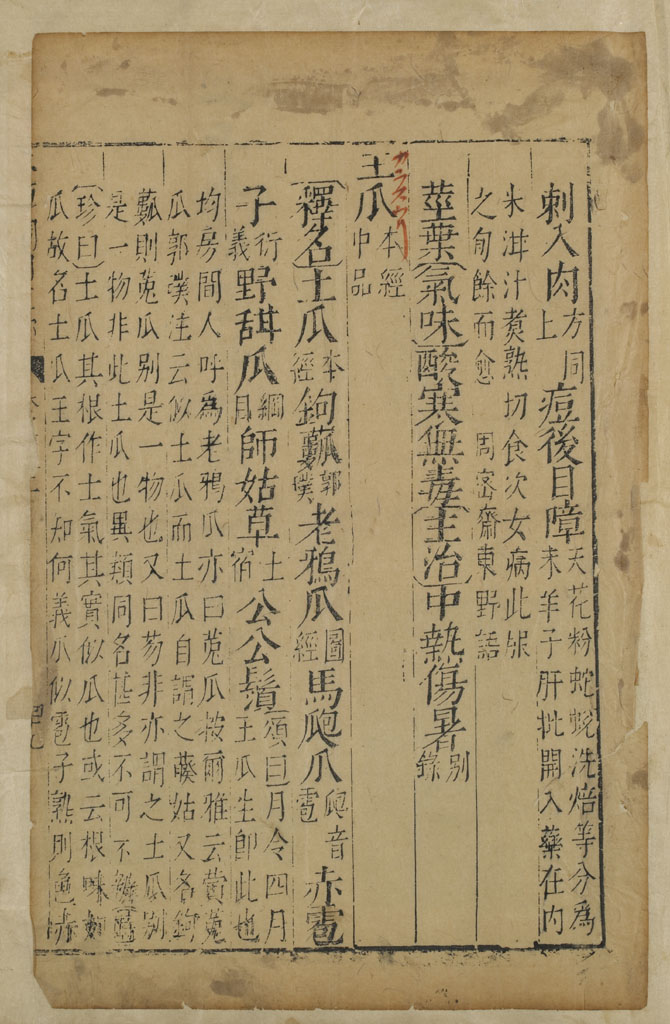 刺入肉方同上痘後目障天花粉蛇蛻洗焙等分為末羊子肝批開入藥在内
米泔汁煑熟切食次女病此服之旬餘而愈 周密齋東野語
莖葉氣味酸寒無毒主治中熱傷暑别錄
王瓜本經中品
カラスウリ
釋名土瓜本經鉤𤬓郭璞老鴉瓜圖經馬㼎瓜㼎音雹赤雹
子衍義野甜瓜綱目師姑草土宿公公鬚頌曰月令四月王瓜生卽此也
均房間人呼為老鴉瓜亦曰菟瓜按爾雅云黄菟
瓜郭璞注云似土瓜而土瓜自謂之藈姑又名鉤
𤬓則菟瓜别是一物也又曰芴菲亦謂之土瓜别
是一物非此土瓜也異類同名甚多不可不
珍曰土瓜其根作土氣其實似瓜也或云根味如
瓜故名土瓜王字不知何義瓜似雹子熟則色赤